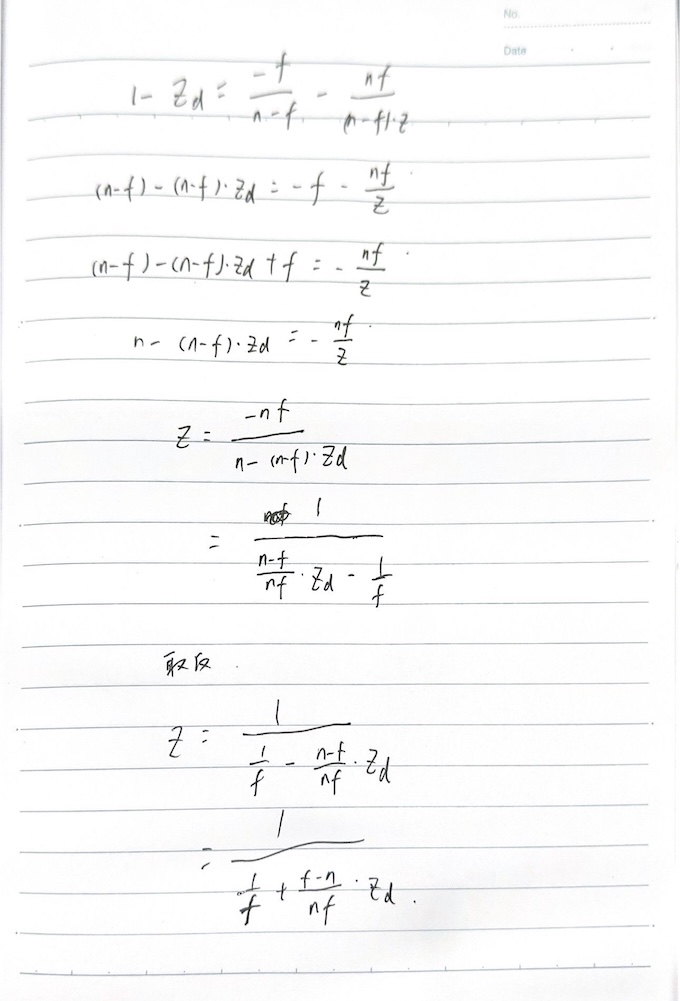 No.
Date
1 - Zd = -f/(n-f) - nf/((n-f)·z)
(n-f) - (n-f)·Zd = -f - nf/z
(n-f) - (n-f)·Zd + f = - nf/z
n - (n-f)·Zd = - nf/z
Z = -nf/(n - (n-f)·Zd)
= 1/((n-f)/nf · Zd - 1/f)
取反.
Z = 1/(1/f - (n-f)/nf · Zd)
= 1/(1/f + (f-n)/nf · Zd).